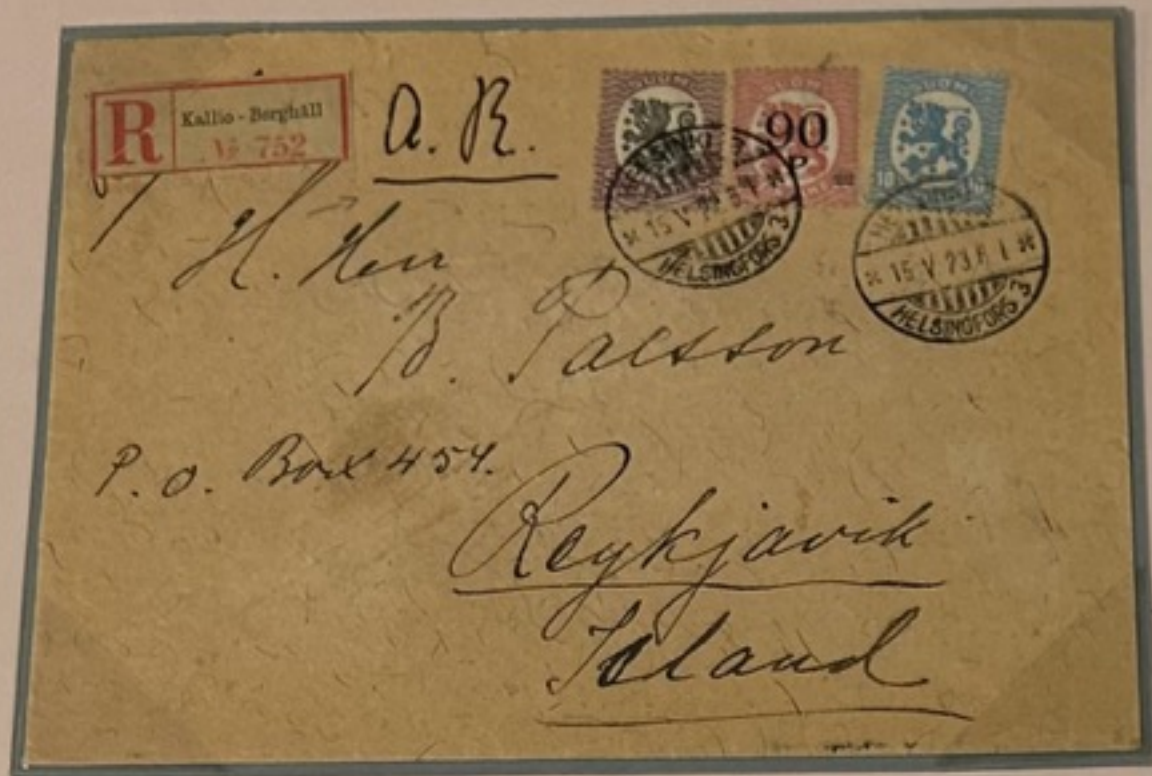 R Kallio - Berghäll
№ 752
a. R.
SUOMI
90
P
SUOMI
10 10
HELSINKI
15. V. 23.
HELSINGFORS 3
15. V. 23. 1
HELSINGFORS 3
H. Herr
B. Palsson
P. o. Box 454.
Reykjavik
Island